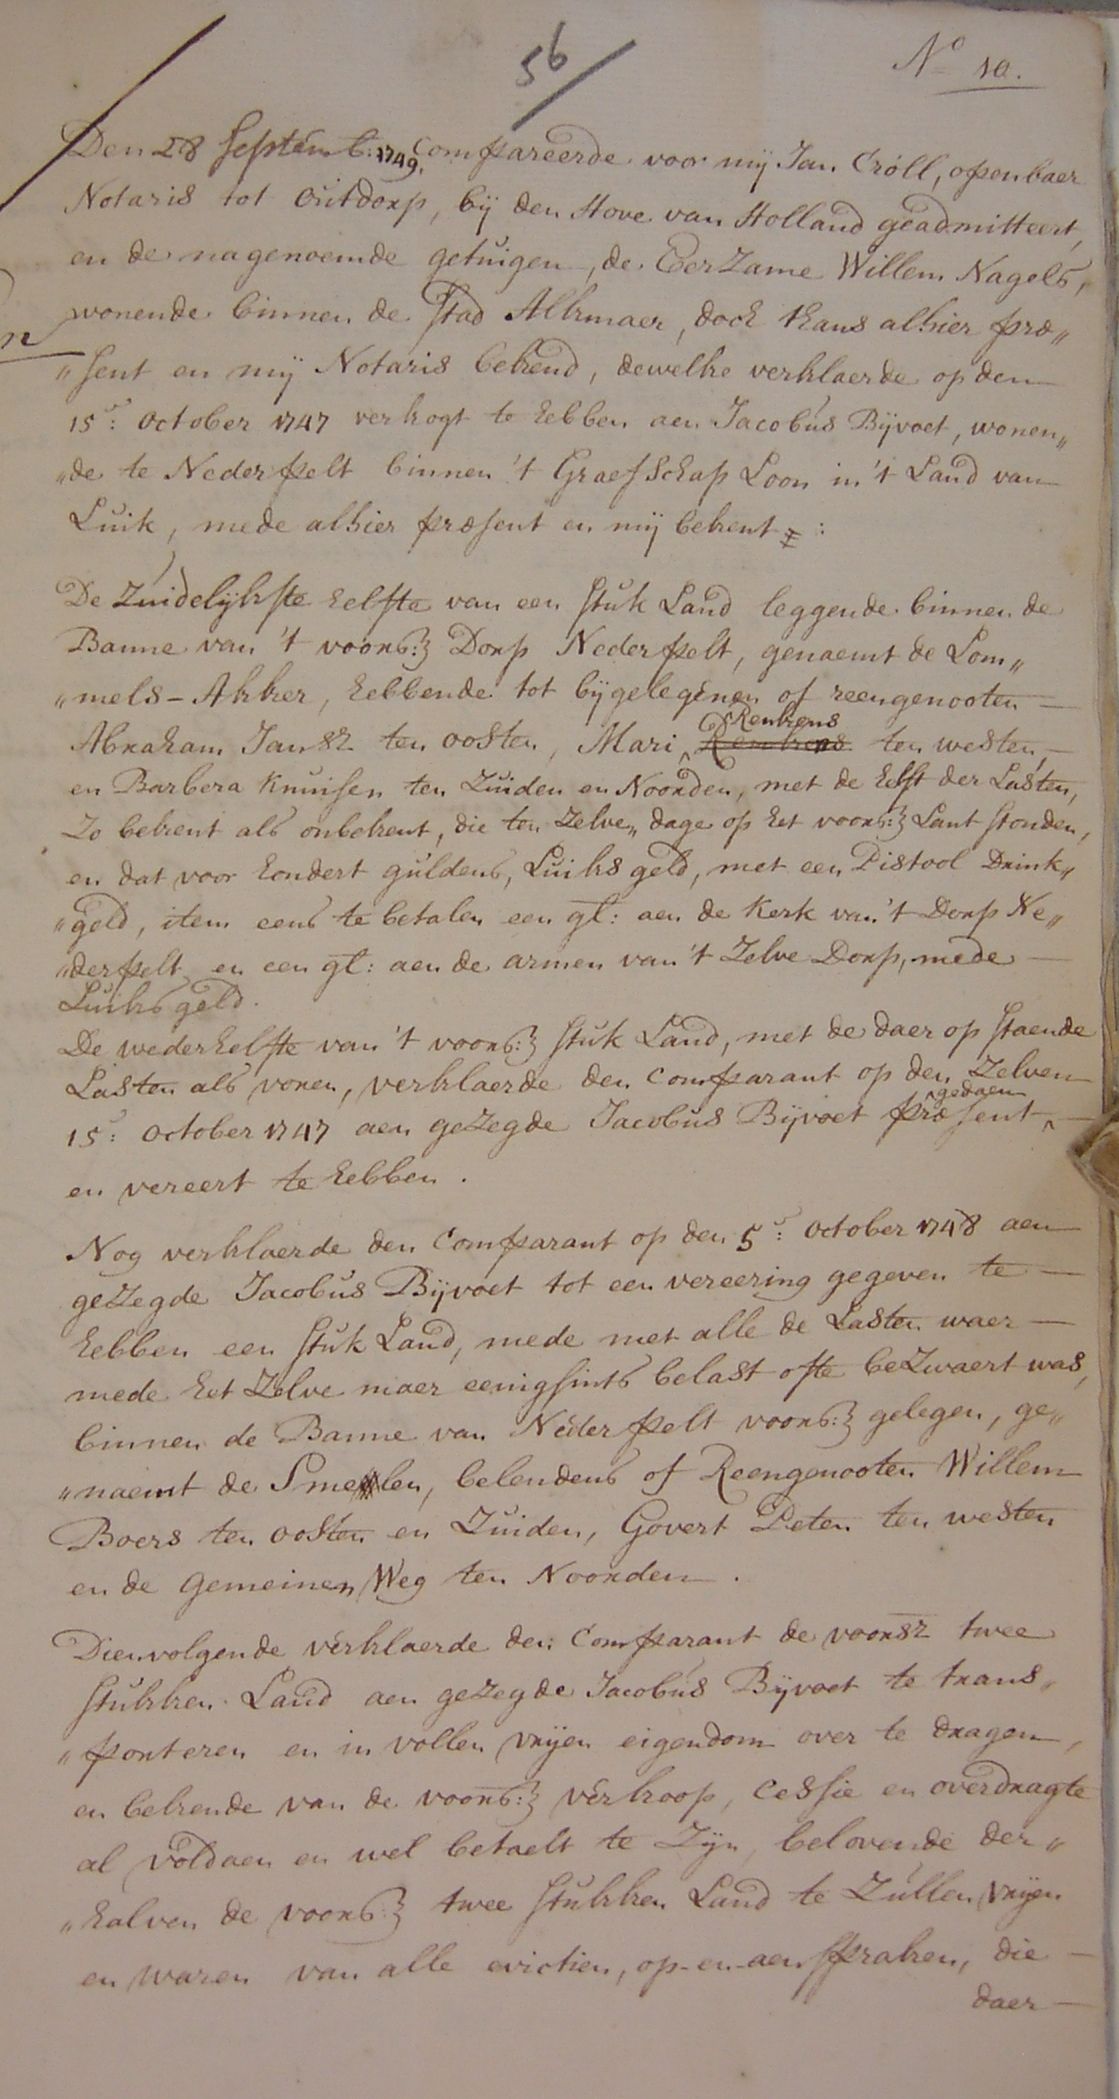 56
No 10.
Den 28 Septemb: 1749. Compareerde voor mij Jan Cróll, openbaer
Notaris tot Outdorp, bij den Hove van Holland geadmitteert,
en de nagenoemde getuigen, de Eerzame Willem Nagels,
wonende binnen de Stad Alkmaer, doch thans alhier præ„
„sent en mij Notaris bekend, dewelke verklaerde op den
15e: October 1747 verkogt te hebben aen Jacobus Bijvoet, wonen„
„de te Nederpelt binnen 't Graefschap Loon in 't Land van
Luik, mede alhier præsent en mij bekent :
De Zuidelijkste helfte van een stuk Land leggende binnen de
Banne van 't voors:3 Dorp Nederpelt, genaemt de Lom„
„mels-Akker, hebbende tot bijgelegenen of reengenooten
Renkens
Abraham Jansz ten oosten, Mari ten westen,
en Barbera Knuisen ten Zuiden en Noorden, met de helft der Lasten,
Zo bekent als onbekent, die ten zelven dage op het voors:3 Lant stonden,
en dat voor hondert guldens, Luiks geld, met een Pistool Drink„
„geld, item eens te betalen een gl: aen de Kerk van 't Dorp Ne„
„derpelt en een gl: aen de armen van 't Zelve Dorp, mede
Luiks geld.
De wederhelfte van 't voors:3 stuk Land, met de daer op staende
Lasten als voren, verklaerde den Comparant op den Zelven
gedaen
15: October 1747 aen gezegde Jacobus Bijvoet præsent
en vereert te hebben.
Nog verklaerde den Comparant op den 5e: October 1748 aen
gezegde Jacobus Bijvoet tot een vereering gegeven te
hebben een stuk Land, mede met alle de Lasten waer
mede het Zelve maer eenigsints belast ofte bezwaert was,
binnen de Banne van Nederpelt voors:3 gelegen, ge„
„naemt de Smeelen, belendens of Reengenooten Willem
Boers ten oosten en Zuiden, Govert Peten ten westen
en de Gemeinen Weg ten Noorden.
Dienvolgende verklaerde den Comparant de voorsz twee
stukken Land aen gezegde Jacobus Bijvoet te trans„
„porteren en in vollen vrijen eigendom over te dragen,
en bekende van de voors:3 verkoop, Cessie en overdragte
al voldaen en wel betaelt te Zijn, belovende der„
„halven de voors:3 twee stukken Land te Zullen vrijen
en waren van alle evictien, op-en-aensprake, die
daer